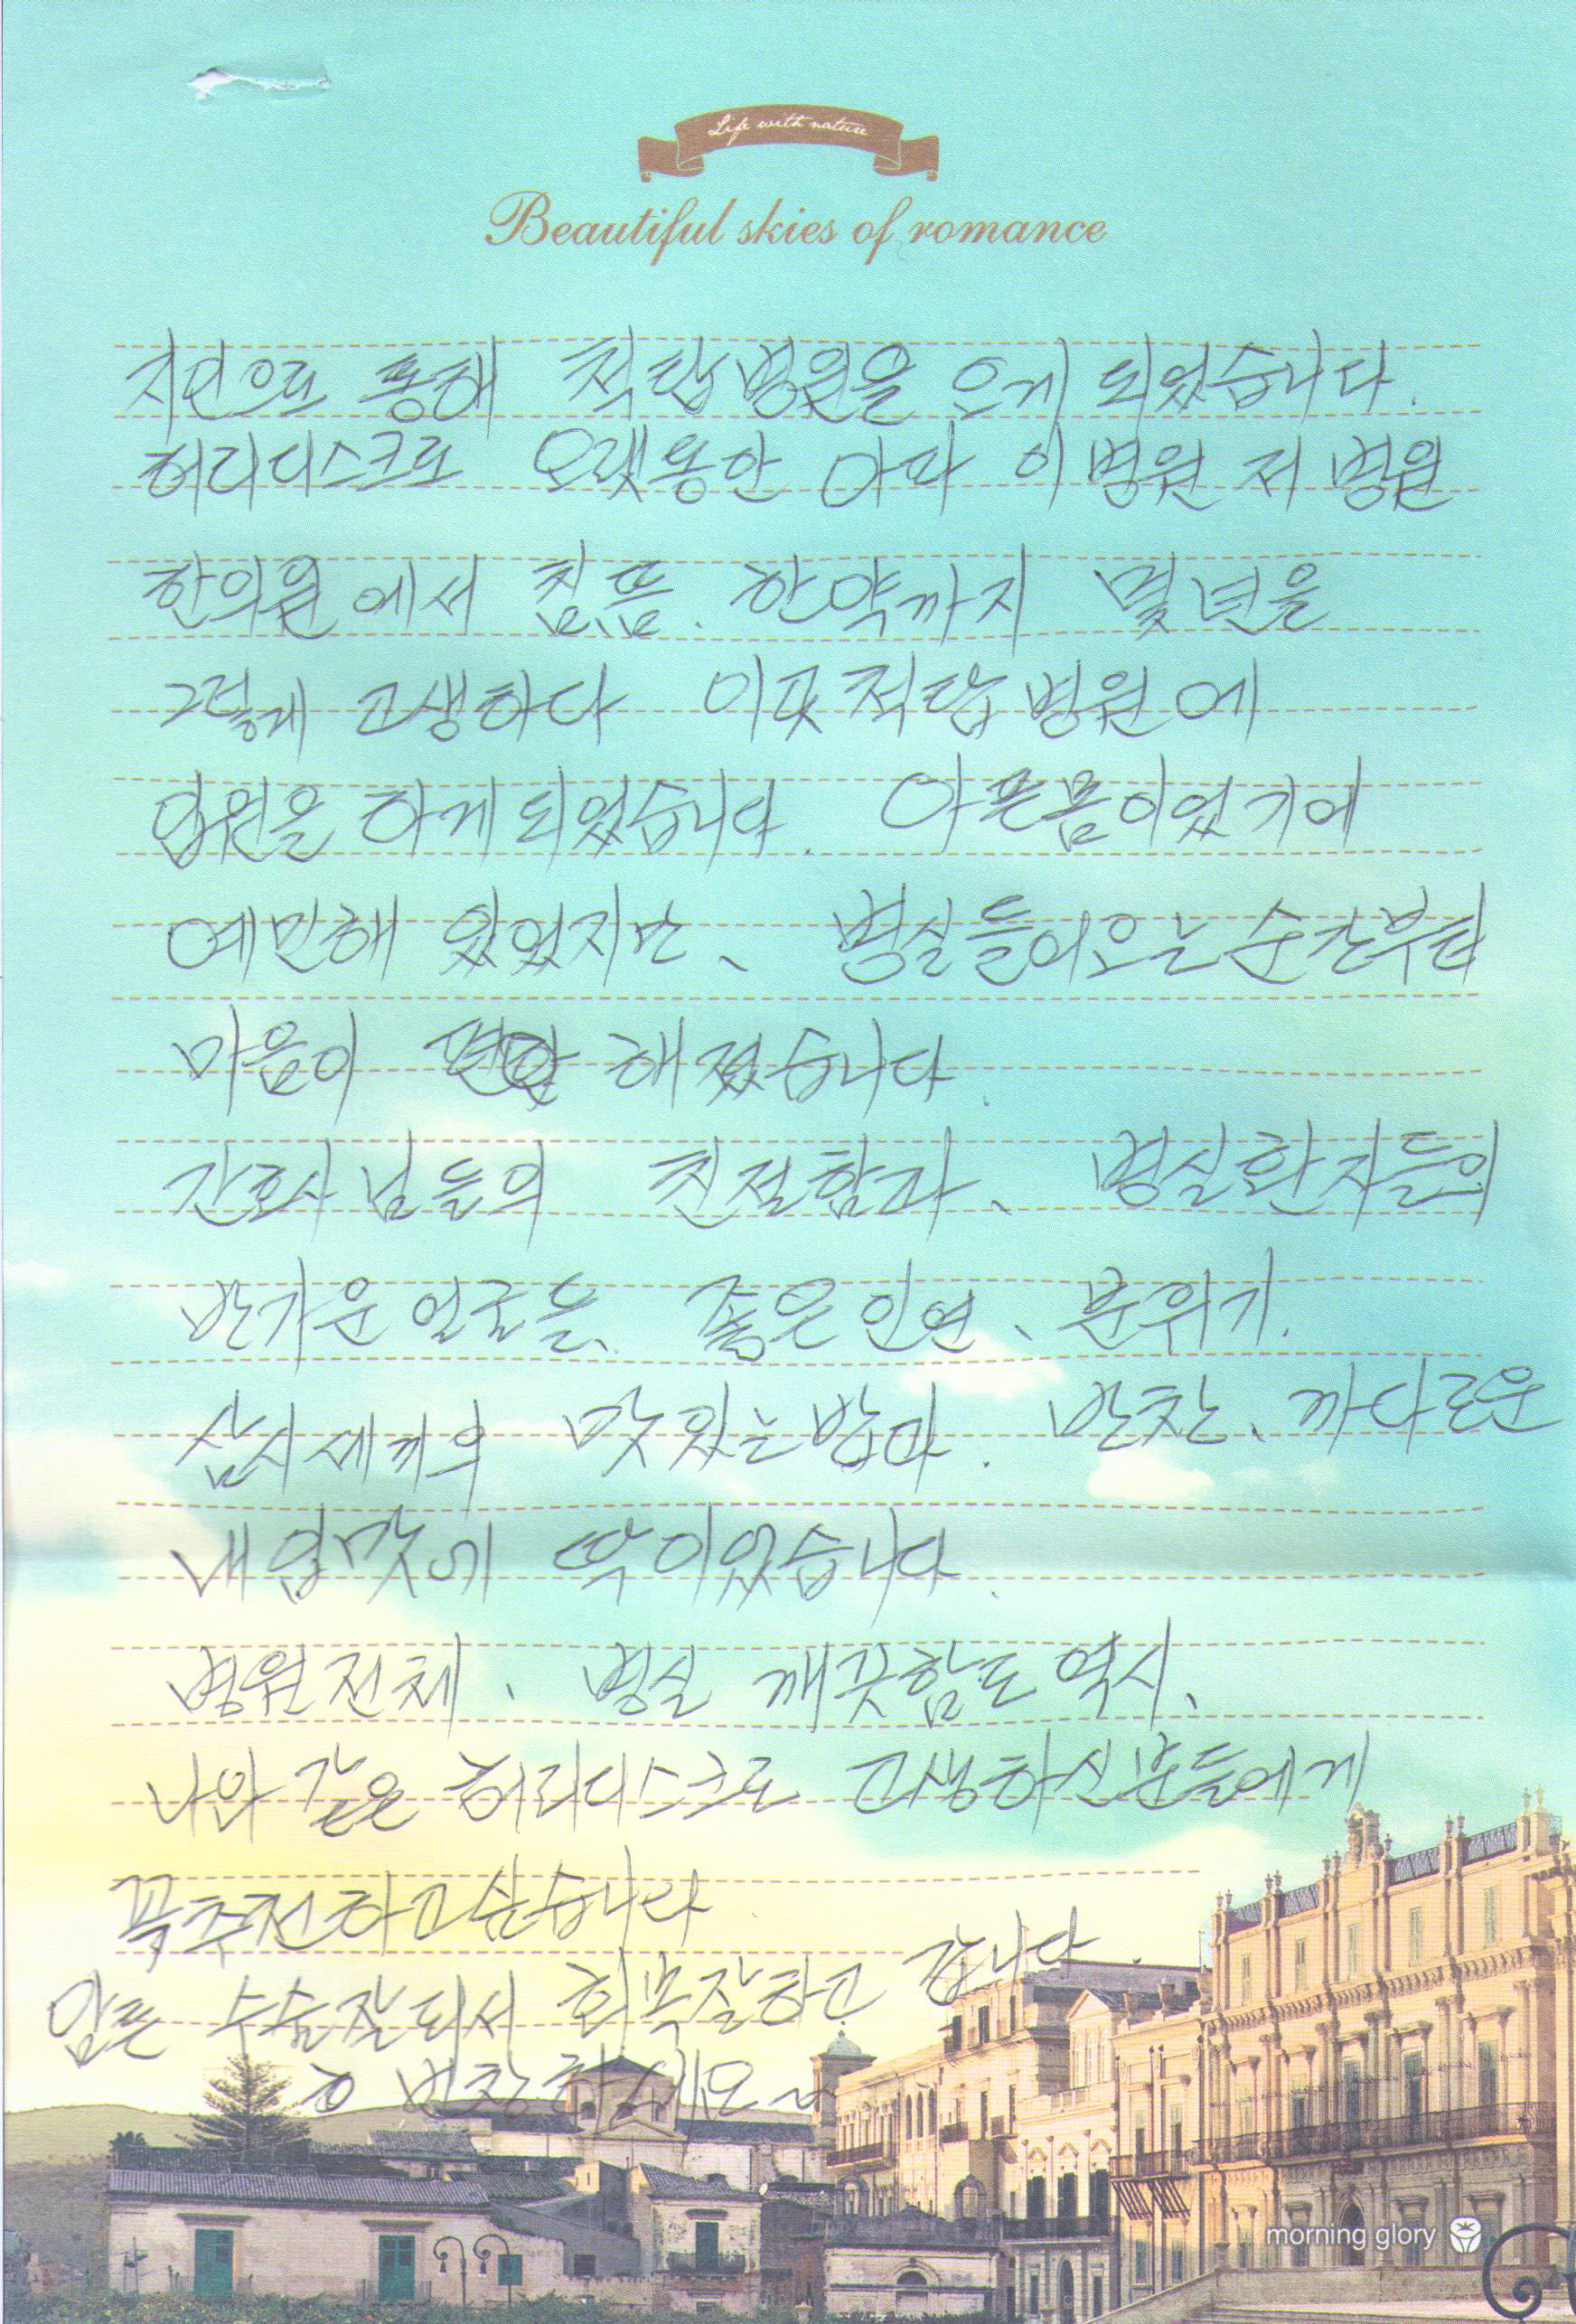 Life with nature
Beautiful skies of romance
지인으로 통해 척탑병원을 오게 되었습니다.
허리디스크로 오랫동안 아파 이병원 저 병원
한의원에서 침, 뜸. 한약까지 몇년을
그렇게 고생하다 이곳 척탑병원에
입원을 하게 되었습니다. 아픈몸이었기에
예민해 있었지만、 병실들어오는 순간부터
마음이 편안해졌습니다.
간호사님들의 친절함과、 병실환자들의
반가운 얼굴들、 좋은인연、분위기.
삼시세끼의 맛있는밥과. 반찬、까다로운
내입맛에 딱이었습니다.
병원전체、 병실 깨끗함도 역시、
나와 같은 허리디스크로 고생하신분들에게
꼭 추천하고싶습니다
수술잘되서 회복잘하고 갑니다.
번창하세요~
morning glory